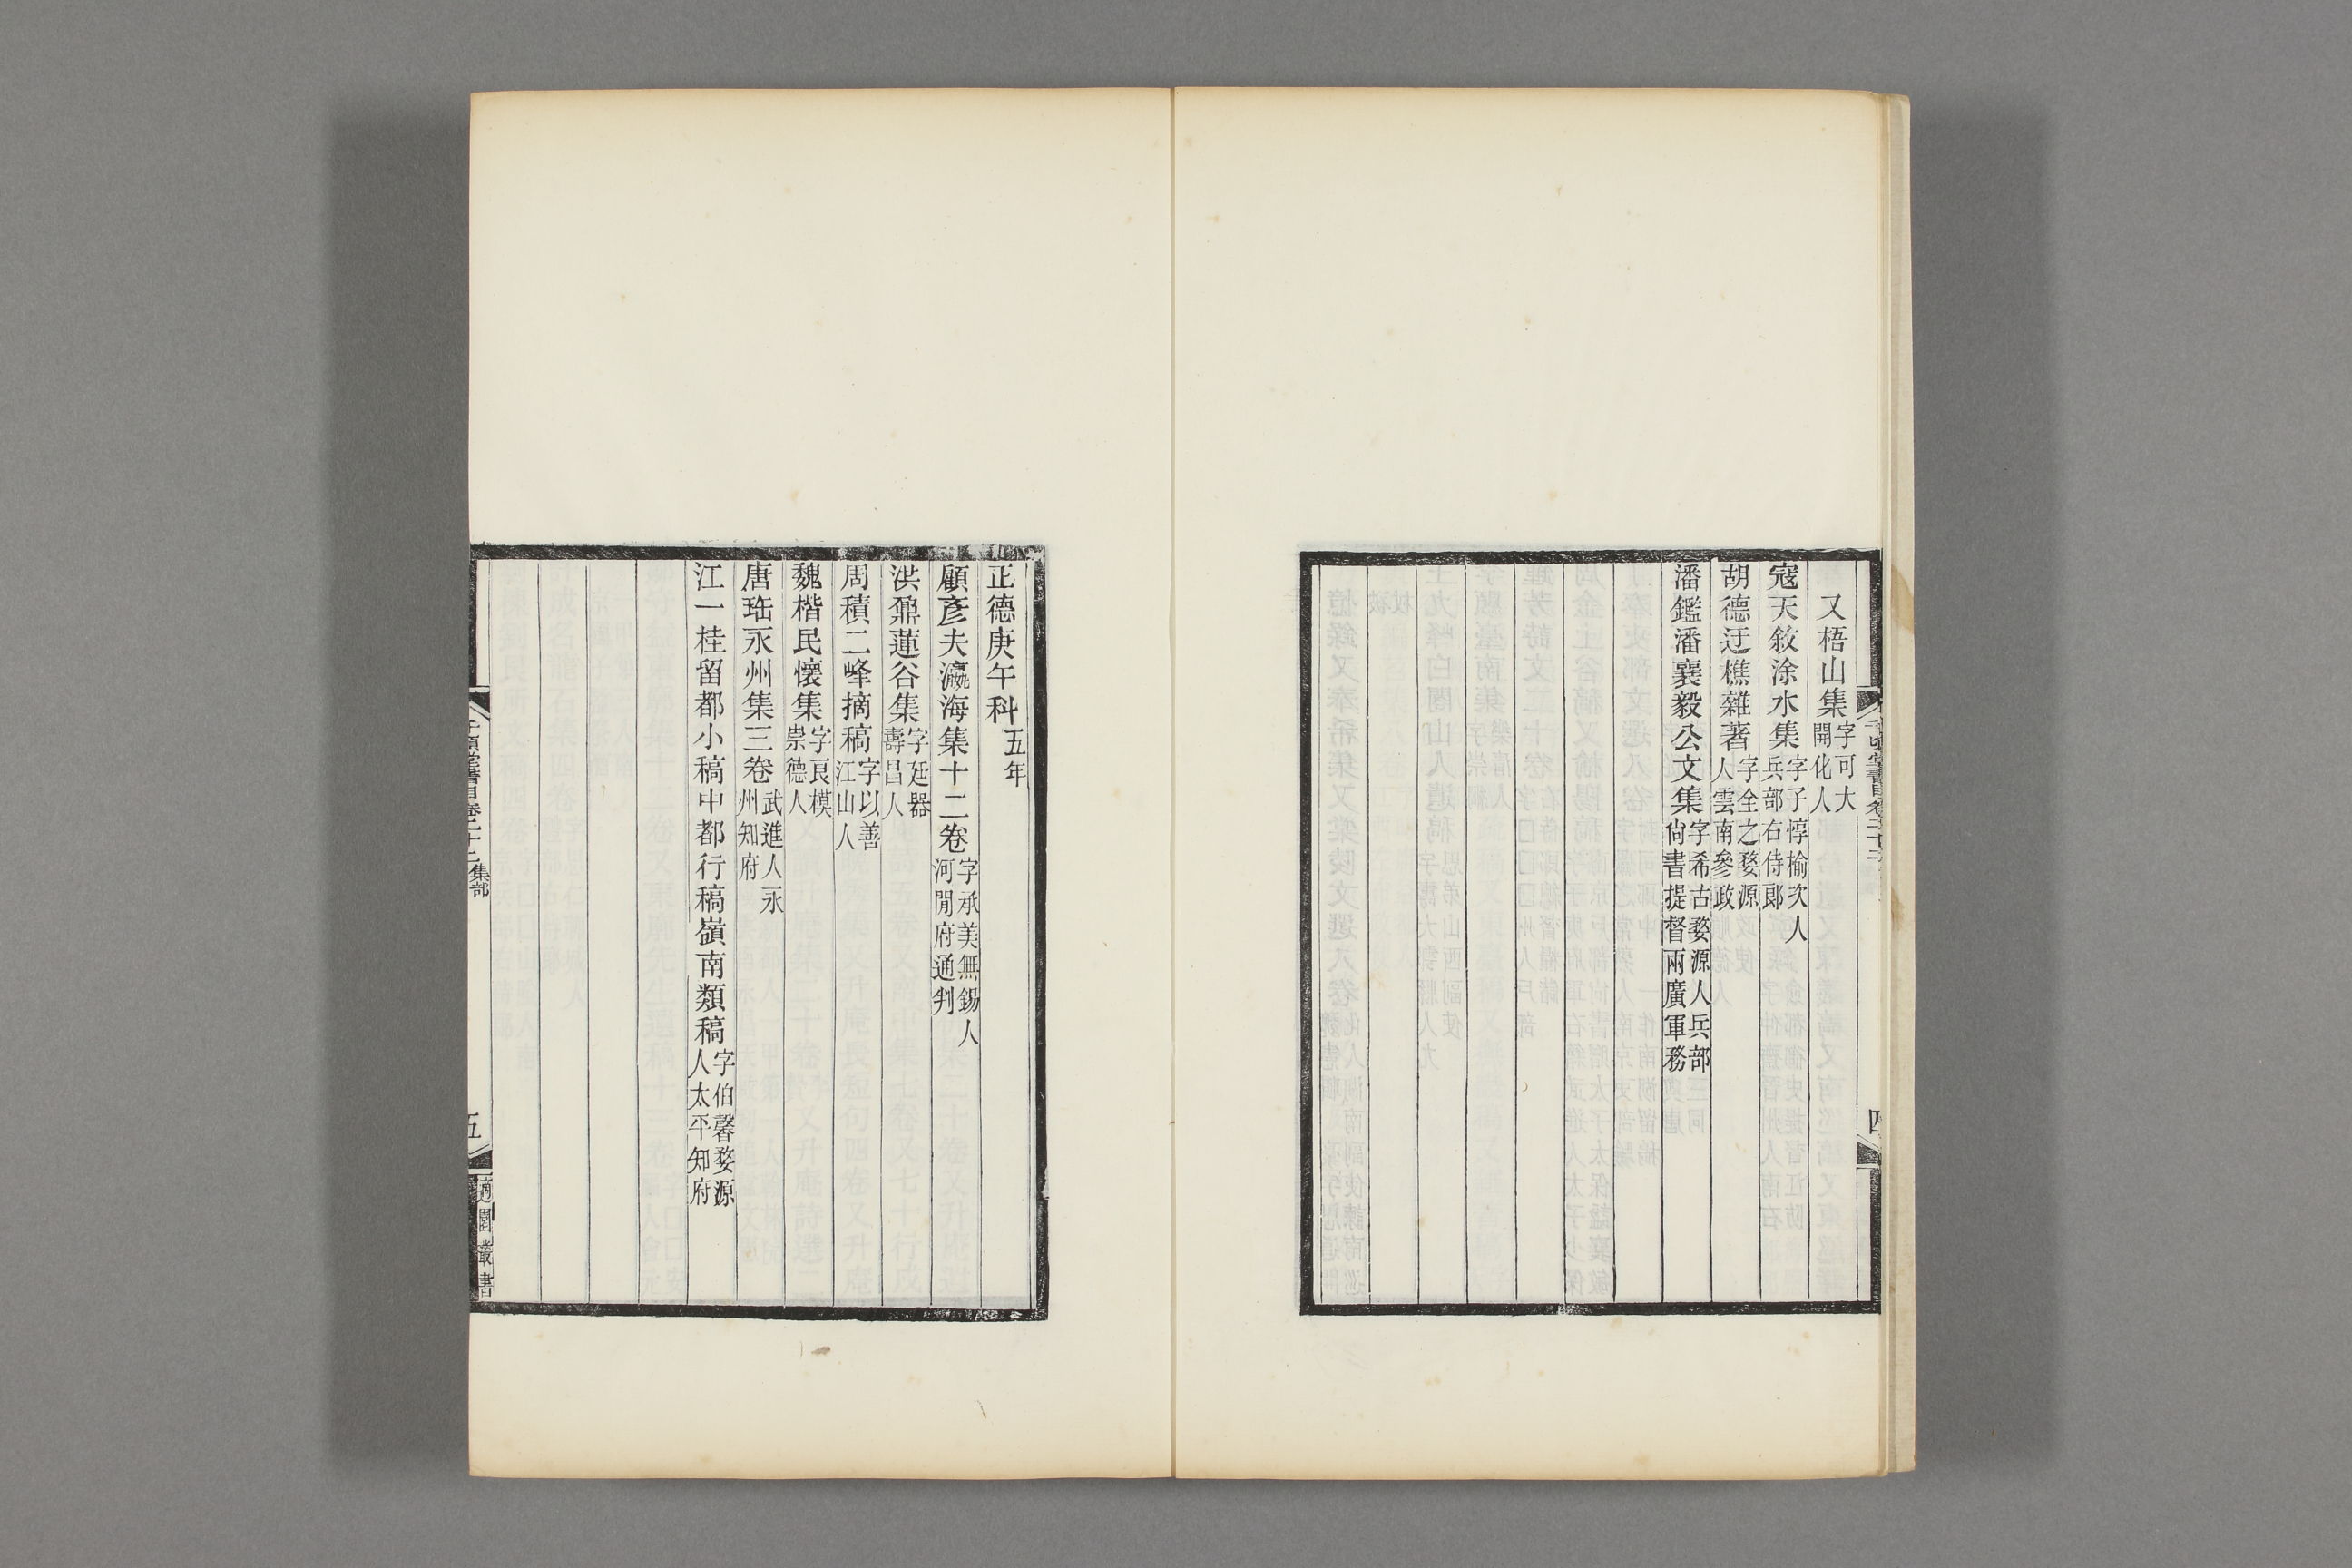 又梧山集字可大開化人
寇天敘涂水集字子惇榆次人兵部右侍郎
胡德迂樵雜著字全之婺源人雲南參政
潘鑑潘襄毅公文集字希古婺源人兵部尙書提督兩廣軍務
四
正德庚午科五年
顧彥夫瀛海集十二卷字承美無錫人河閒府通判
洪鼐蓮谷集字廷器壽昌人
周積二峰摘稿字以善江山人
魏楷民懷集字良模崇德人
唐珤永州集三卷武進人永州知府
江一桂留都小稿中都行稿嶺南類稿字伯馨婺源人太平知府
千頃堂書目卷二十二集部
五
適園叢書